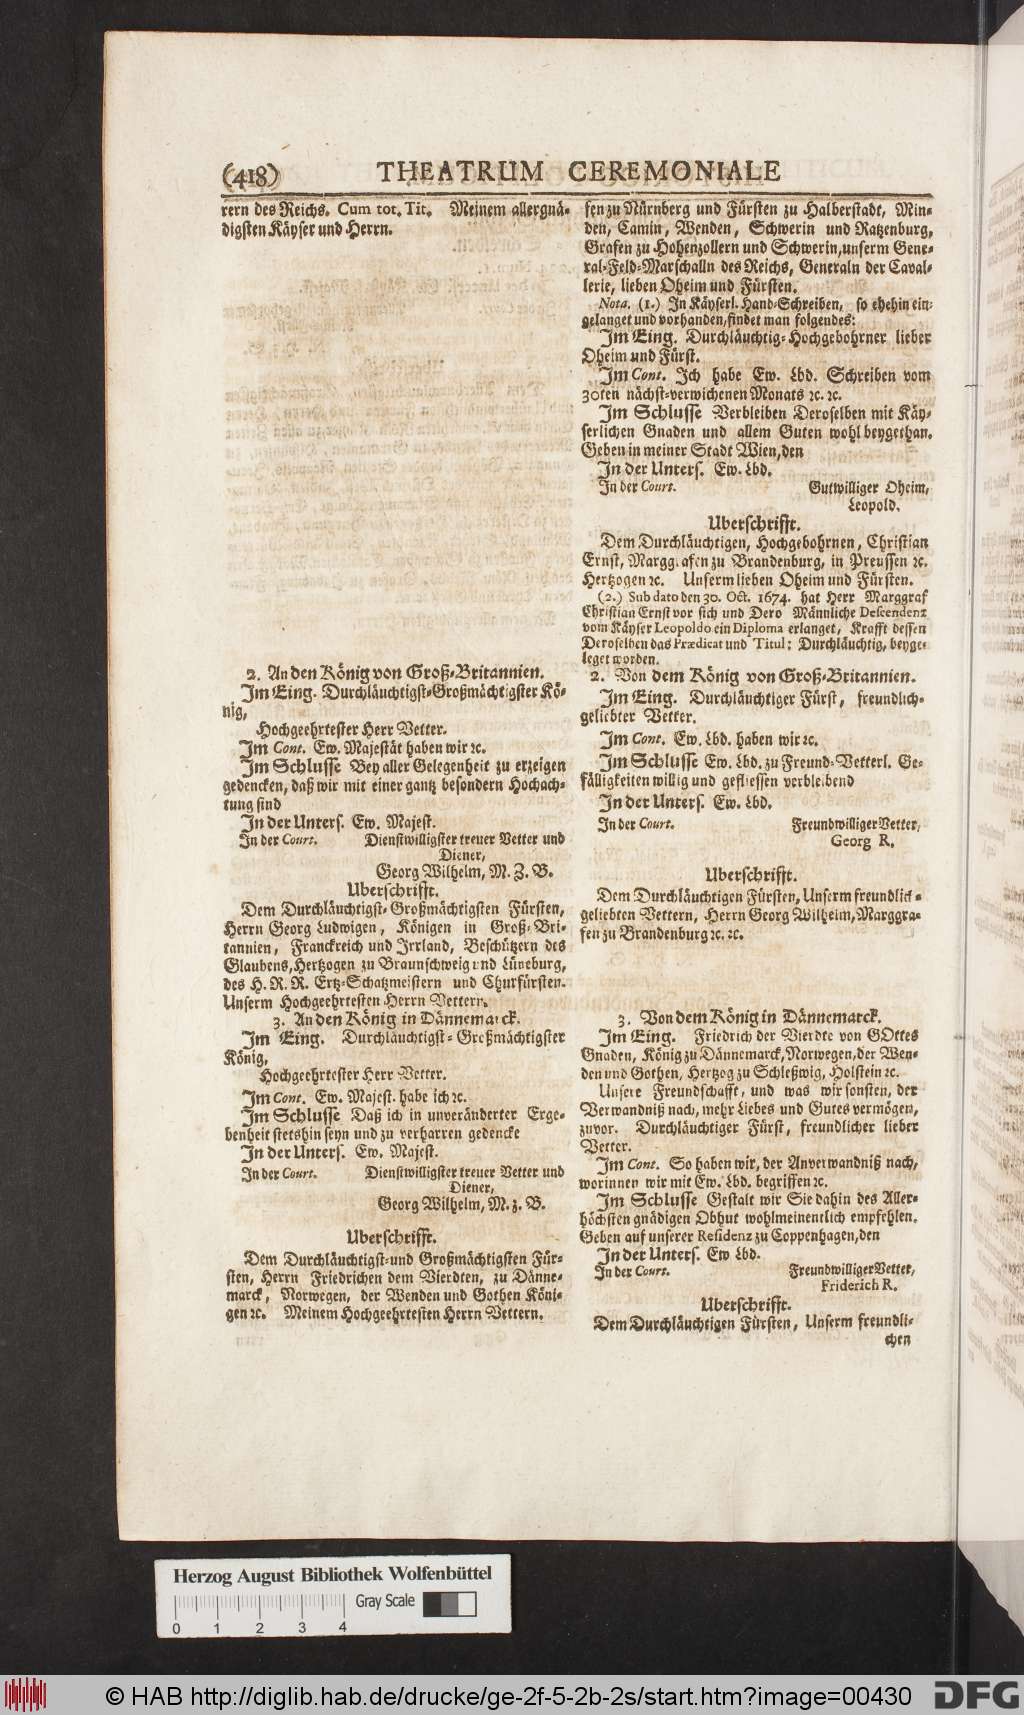 (418) THEATRUM CEREMONIALE
rern des Reichs. Cum tot. Tit. Meinem allergnä-
digsten Käyser und Herrn.
2. An den König von Groß-Britannien.
Im Eing. Durchläuchtigst-Großmächtigster Kö-
nig,
Hochgeehrtester Herr Vetter.
Im Cont. Ew. Majestät haben wir ꝛc.
Im Schlusse Bey aller Gelegenheit zu erzeigen
gedencken, daß wir mit einer gantz besondern Hochach-
tung sind
In der Unters. Ew. Majest.
In der Court. Dienstwilligster treuer Vetter und
Diener,
Georg Wilhelm, M. Z. B.
Uberschrifft.
Dem Durchläuchtigst-Großmächtigsten Fürsten,
Herrn Georg Ludwigen, Königen in Groß-Bri-
tannien, Franckreich und Irrland, Beschützern des
Glaubens, Hertzogen zu Braunschweig und Lüneburg,
des H. R. R. Ertz-Schatzmeistern und Churfürsten.
Unserm Hochgeehrtesten Herrn Vettern.
3. An den König in Dännemarck.
Im Eing. Durchläuchtigst-Großmächtigster
König,
Hochgeehrtester Herr Vetter.
Im Cont. Ew. Majest. habe ich ꝛc.
Im Schlusse Daß ich in unveränderter Erge-
benheit stetshin seyn und zu verharren gedencke
In der Unters. Ew. Majest.
In der Court. Dienstwilligster treuer Vetter und
Diener,
Georg Wilhelm, M. z. B.
Uberschrifft.
Dem Durchläuchtigst-und Großmächtigsten Für-
sten, Herrn Friedrichen dem Vierdten, zu Dänne-
marck, Norwegen, der Wenden und Gothen Köni-
gen ꝛc. Meinem Hochgeehrtesten Herrn Vettern.
fen zu Nürnberg und Fürsten zu Halberstadt, Min-
den, Camin, Wenden, Schwerin und Ratzenburg,
Grafen zu Hohenzollern und Schwerin, unserm Gene-
ral-Feld-Marschalln des Reichs, Generaln der Caval-
lerie, lieben Oheim und Fürsten.
Nota. (1.) In Käyserl. Hand-Schreiben, so ehehin ein-
gelanget und vorhanden, findet man folgendes:
Im Eing. Durchläuchtig-Hochgebohrner lieber
Oheim und Fürst.
Im Cont. Ich habe Ew. Lbd. Schreiben vom
30ten nächst-verwichenen Monats ꝛc. ꝛc.
Im Schlusse Verbleiben Deroselben mit Käy-
serlichen Gnaden und allem Guten wohl beygethan.
Geben in meiner Stadt Wien, den
In der Unters. Ew. Lbd.
In der Court. Gutwilliger Oheim,
Leopold.
Uberschrifft.
Dem Durchläuchtigen, Hochgebohrnen, Christian
Ernst, Marggrafen zu Brandenburg, in Preussen ꝛc.
Hertzogen ꝛc. Unserm lieben Oheim und Fürsten.
(2.) Sub dato den 30. Oct. 1674. hat Herr Marggraf
Christian Ernst vor sich und Dero Männliche Descendenz
vom Käyser Leopoldo ein Diploma erlanget, Krafft dessen
Deroselben das Prædicat und Titul: Durchläuchtig, beyge-
leget worden.
2. Von dem König von Groß-Britannien.
Im Eing. Durchläuchtiger Fürst, freundlich-
geliebter Vetter.
Im Cont. Ew. Lbd. haben wir ꝛc.
Im Schlusse Ew. Lbd. zu Freund-Vetterl. Ge-
fälligkeiten willig und geflissen verbleibend
In der Unters. Ew. Lbd.
In der Court. Freundwilliger Vetter,
Georg R.
Uberschrifft.
Dem Durchläuchtigen Fürsten, Unserm freundlich-
geliebten Vettern, Herrn Georg Wilhelm, Marggra-
fen zu Brandenburg ꝛc. ꝛc.
3. Von dem König in Dännemarck.
Im Eing. Friedrich der Vierdte von GOttes
Gnaden, König zu Dännemarck, Norwegen, der Wen-
den und Gothen, Hertzog zu Schleßwig, Holstein ꝛc.
Unsere Freundschafft, und was wir sonsten, der
Verwandniß nach, mehr Liebes und Gutes vermögen,
zuvor. Durchläuchtiger Fürst, freundlicher lieber
Vetter.
Im Cont. So haben wir, der Anverwandniß nach,
worinnen wir mit Ew. Lbd. begriffen ꝛc.
Im Schlusse Gestalt wir Sie dahin des Aller-
höchsten gnädigen Obhut wohlmeinentlich empfehlen.
Geben auf unserer Residenz zu Coppenhagen, den
In der Unters. Ew Lbd.
In der Court. Freundwilliger Vetter,
Friderich R.
Uberschrifft.
Dem Durchläuchtigen Fürsten, Unserm freundli-
chen
Herzog August Bibliothek Wolfenbüttel
Gray Scale
0 1 2 3 4
© HAB http://diglib.hab.de/drucke/ge-2f-5-2b-2s/start.htm?image=00430
DFG